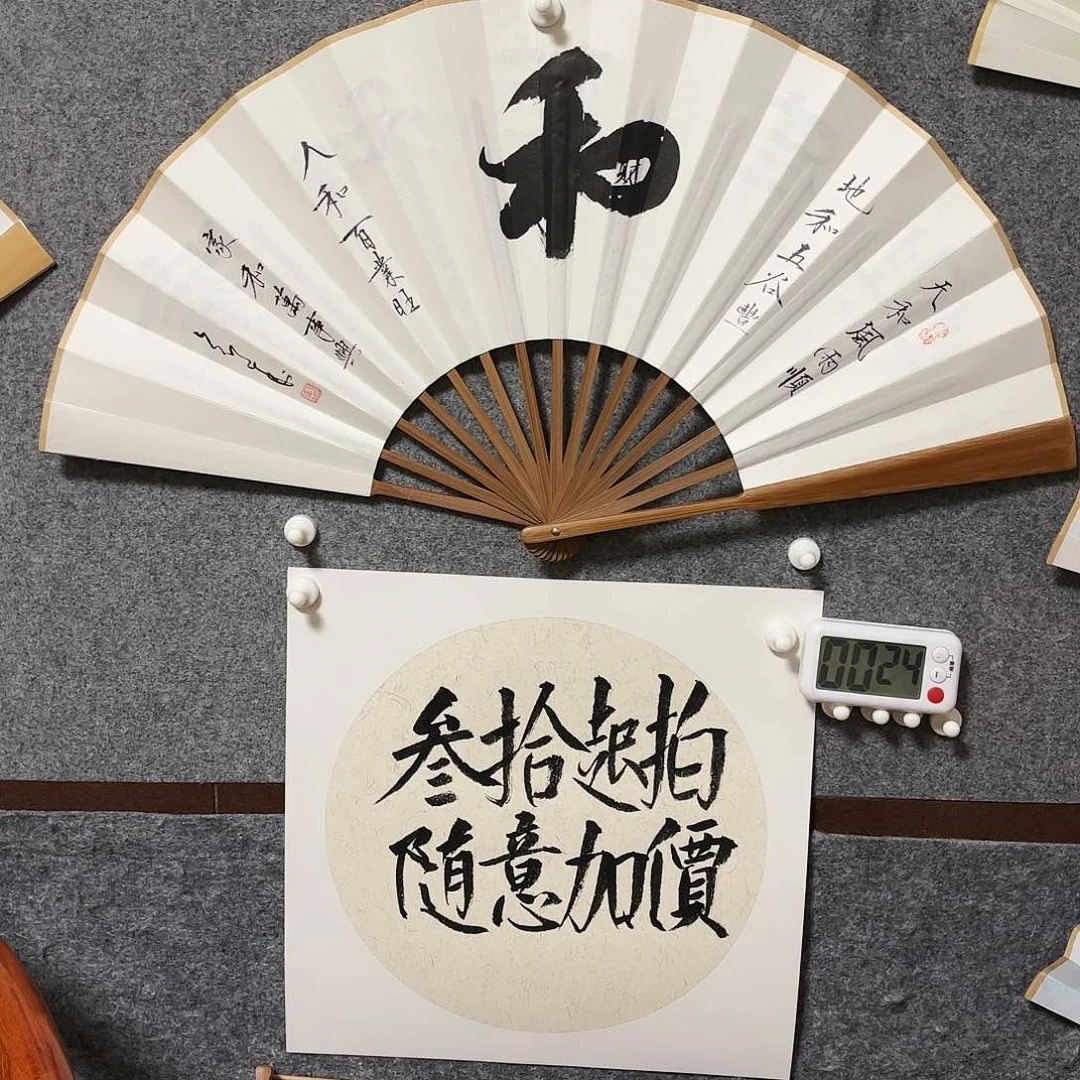 和
财
天和風雨順
地和五谷豐
人和百業旺
家和萬事興
叁拾起拍
随意加價
00 24